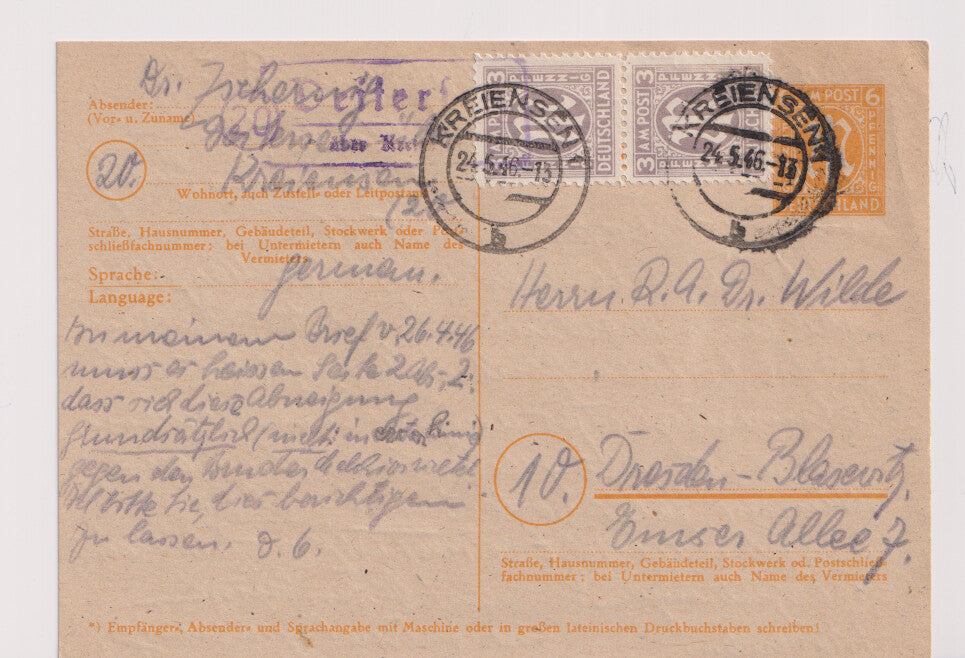 Absender:
Dr.
(Vor- u. Zuname)
über
20.
Kreiensen
Wohnort, auch Zustell- oder Leitpostamt
Straße, Hausnummer, Gebäudeteil, Stockwerk oder Post-
schließfachnummer: bei Untermietern auch Name des
Vermieters
Sprache:
german.
Language:
In meinem Brief v. 26.4.46
muss es heissen Seite 2 Abs. 2:
dass sich diese Abneigung
grundsätzlich (nicht: in
gegen den
Ich bitte Sie, dies berichtigen
zu lassen. D. O.
3 PFENNIG
AM POST
DEUTSCHLAND
3 PFENNIG
3 AM POST
DEUTSCHLAND
AM POST 6
PFENNIG
DEUTSCHLAND
KREIENSEN
24.5.46.-13
b
KREIENSEN
24.5.46.-13
b
Herrn R.A. Dr. Wilde
10.
Dresden-Blasewitz.
Emser Allee 7.
Straße, Hausnummer, Gebäudeteil, Stockwerk od. Postschließ-
fachnummer: bei Untermietern auch Name des Vermieters
*) Empfänger-, Absender- und Sprachangabe mit Maschine oder in großen lateinischen Druckbuchstaben schreiben!